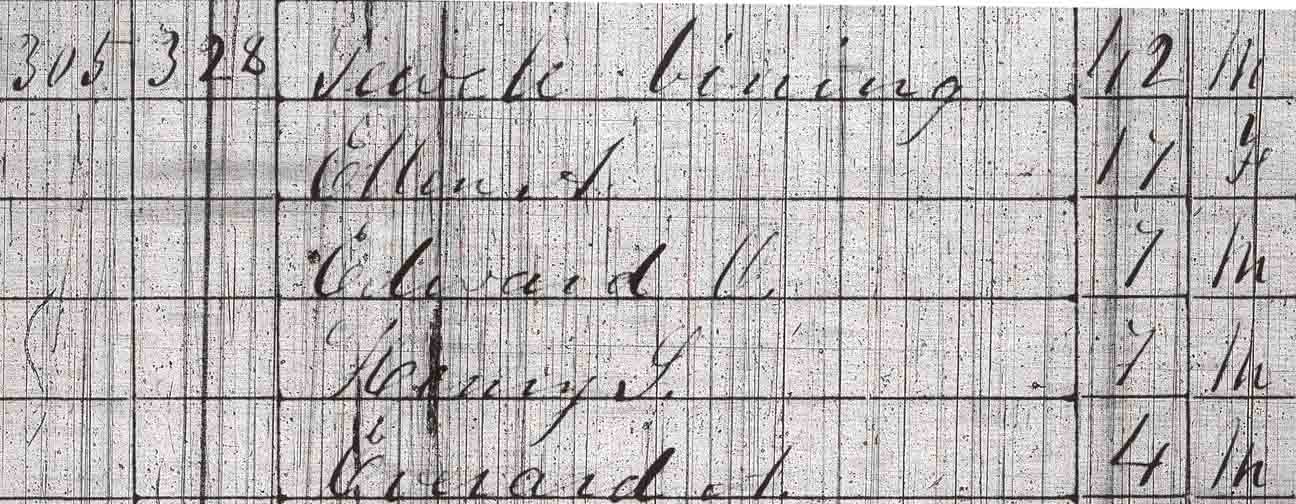 305 328 Sewell bining 42 M
Ellen A. 17 F
Edward 7 M
Henry S. 7 M
Everard A. 4 M